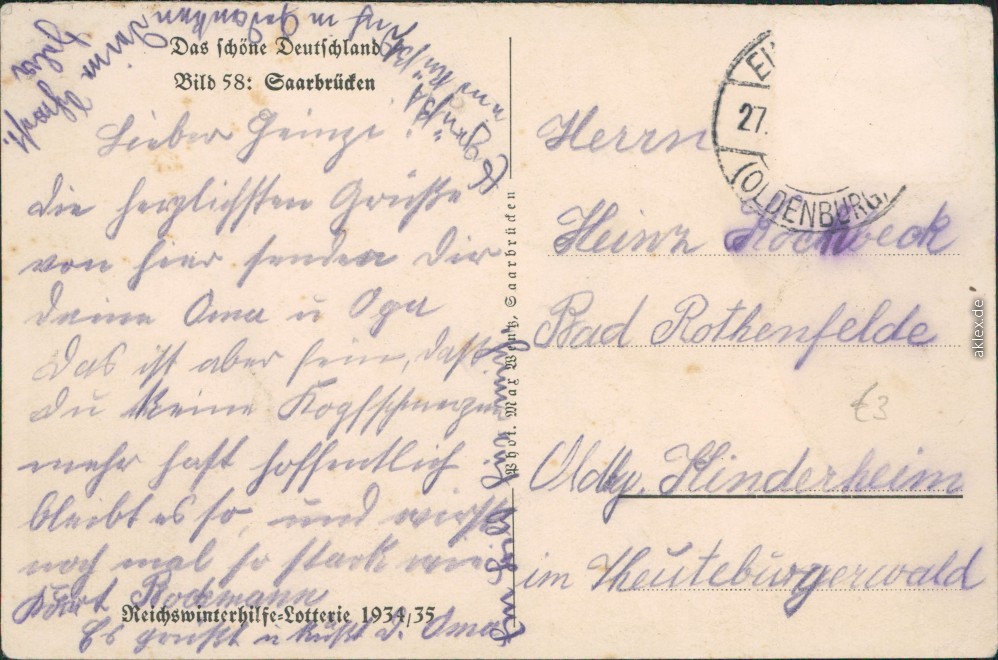 Das schöne Deutschland
Bild 58: Saarbrücken
Lieber Heinzi!
die herzlichsten Grüße
von hier senden Dir
deine Oma u Opa
Das ist aber fein, daß
du keine Kopfschmerzen
mehr hast hoffentlich
bleibt es so, und wirst
noch mal so stark wie
Kurt Bockmann
Reichswinterhilfe-Lotterie 1934/35
Es grüßt u küßt d. Oma
Phot. Max Wentz, Saarbrücken
27.
(OLDENBURG)
Herrn
Heinz
Bad Rothenfelde
Oldbg. Kinderheim
im Theuteburgerwald
€3
aklex.de